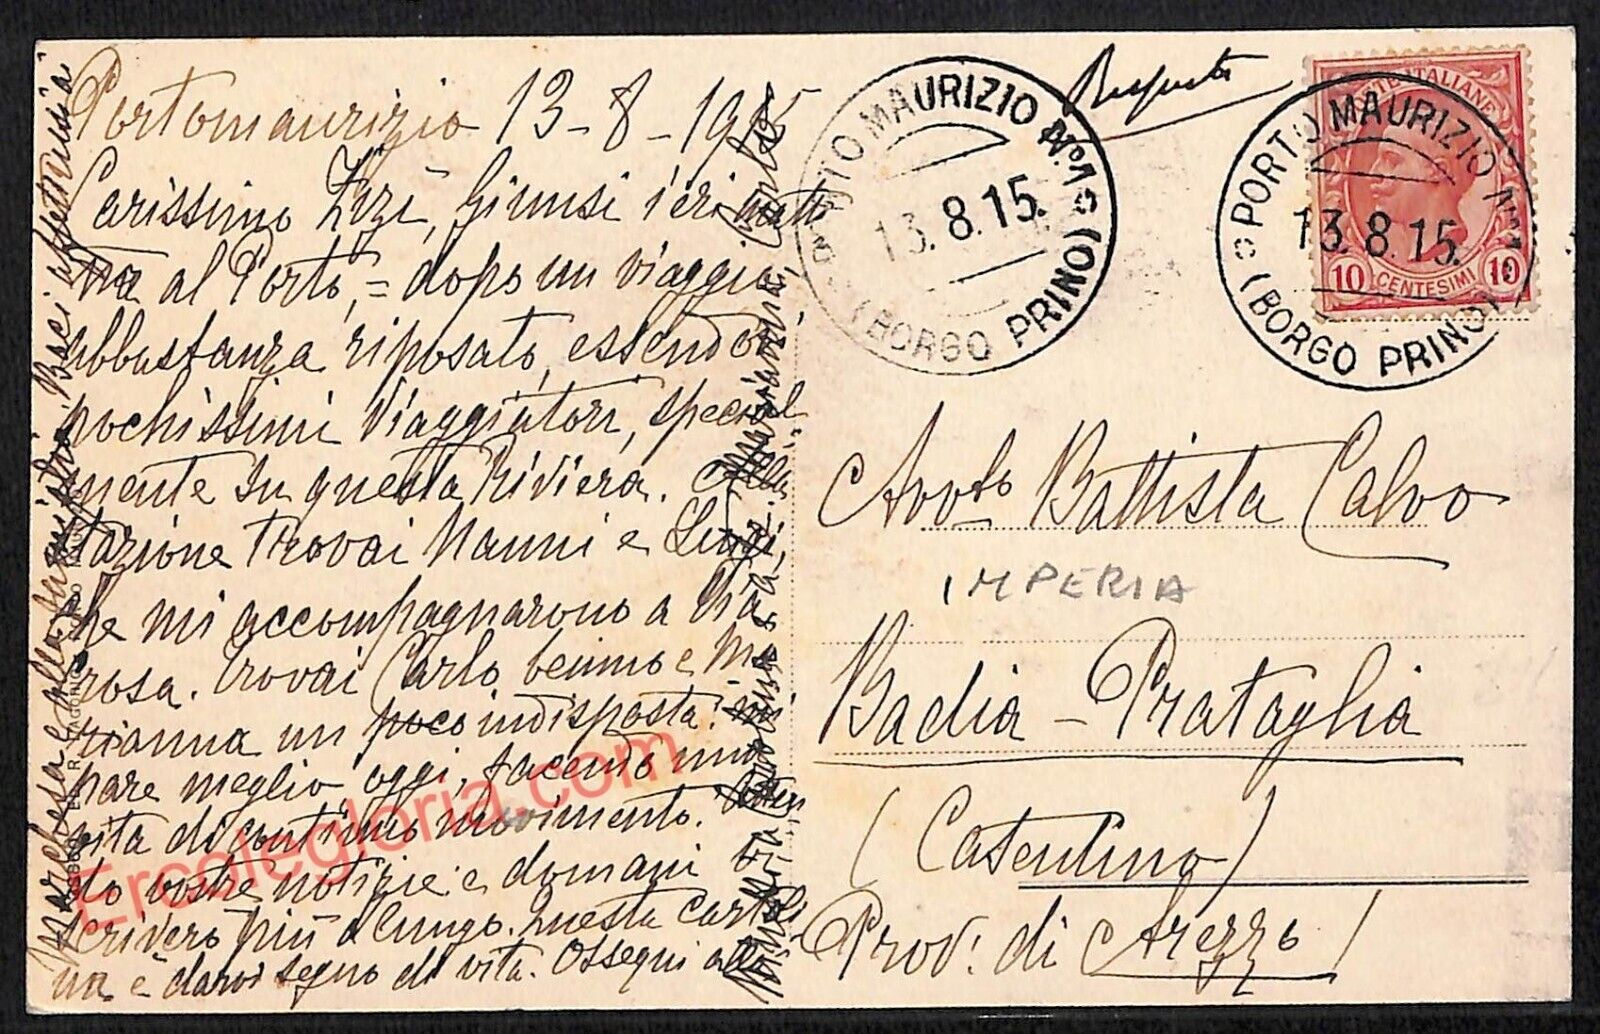 Portomaurizio 13-8-1915
Carissimo Zizi, Giunsi ieri matti
na al Porto, = dopo un viaggio
abbastanza riposato, essendovi
pochissimi viaggiatori, special
mente su questa Riviera. Alla
stazione trovai Nanni e Luigi,
che mi accompagnarono a Via
rosa. Trovai Carlo benino e Ma
rianna un poco indisposta: mi
pare meglio, oggi, facendo una
vita di continuo movimento. Atten
do vostre notizie e domani vi
scriverò più a lungo. Questa cartoli
na è darvi segno di vita. Ossequi alla
marchesa e alla famiglia. Baci affettuosi
Carlo
Marianna
Risposta
PORTO MAURIZIO No. 1
13.8.15.
(BORGO PRINO)
PORTO MAURIZIO No. 1
13.8.15.
(BORGO PRINO)
POSTE ITALIANE
10 CENTESIMI 10
Avv.to Battista Calvo
IMPERIA
Badia-Prataglia
(Casentino)
Prov. di Arezzo
Ercolegloria.com